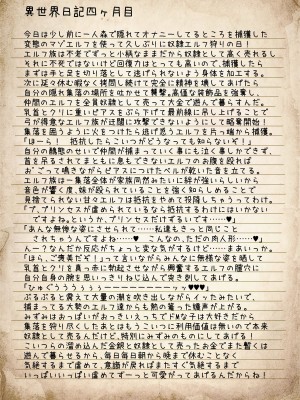 異世界日記四ヶ月目
今日は少し前に一人森で隠れてオナニーしてるところを捕獲した
変態のマゾエルフを使って久しぶりに奴隷エルフ狩りの日！
エルフ族は不老でずっと小柄なままだから奴隷として高く売れるし
それに不死ではないけど回復力はとっても高いので、捕獲したら
まずは手と足を切り落として逃げられない身体を加工する。
次に延々休む暇なく拷問し続けて完全に精神を壊してあげたら
自分の隠れ集落の場所を吐かせて襲撃。高価な装飾品を強奪し、
仲間のエルフを全員奴隷として売って大金で遊んで暮らすんだ。
乳首とクリに重いピアスをぶら下げて最前線に吊し上げることで
弓が得意なエルフ族が迂闊に攻撃できないようにして略奪開始！
集落を囲うように火をつけたら逃げ惑うエルフを片っ端から捕獲。
『ほーら！　抵抗したらこいつがどうなっても知らないぞ！』
自分の醜態のせいで仲間が捕まっていく事にも泣く事しかできず、
首を吊るされてまともに息もできないエルフのお腹を殴れば
おごって鳴きながらピアスにつけたベルが乾いた音を立てる。
エルフ族は一集落全体が家族同然みたいに絆が強いらしいから
音色が響く度、姉が殴られていることを強く知らしめることで
見捨てられない甘ちゃんエルフは抵抗をやめて投降しちゃうってわけ。
『プ、プリンセスが虐められているなら抵抗するわけにはいかない
ですよね。というか、プリンセスだけずるいです……♥』
『あんな無様な姿にさせられて……私達もきっと同じこと
されちゃうんですよね…♥　こんなの、ただの肉人形……♥』
んー？なんだか反応がちょっと変な気がするけど……まあいっか。
『ほら、ご褒美だぞ！』って言いながらみんなに無様な姿を晒して
乳首とクリを真っ赤に勃起させながら興奮するエルフの膣穴に
自分自身の腕を思いっきりねじ込んで突き刺してあげる。
『ひゅぐううぅぅぅーーーーーーーッッ♥♥♥』
ぷるぷると震えて大量の潮を吹き出しながらイッたみたいで、
捕まってる大勢のエルフ達からも熱の篭った嬌声が上がる。
みずみはおっぱいがおっきいえっちでドMな子は大好きだから
集落を狩り尽くしたあとはもうこいつに利用価値は無いので本来
奴隷として売るんだけど、特別にみずみのものにしてあげる！
こいつらの溜め込んだ金銀と奴隷として売ったお金でまた暫くは
遊んで暮らせるから、毎日毎日朝から晩まで休むことなく
気絶するまで虐めて、意識が戻ればまたすぐ気絶するまで
いっぱいいっぱい虐めてずーっと可愛がってあげるんだからね！